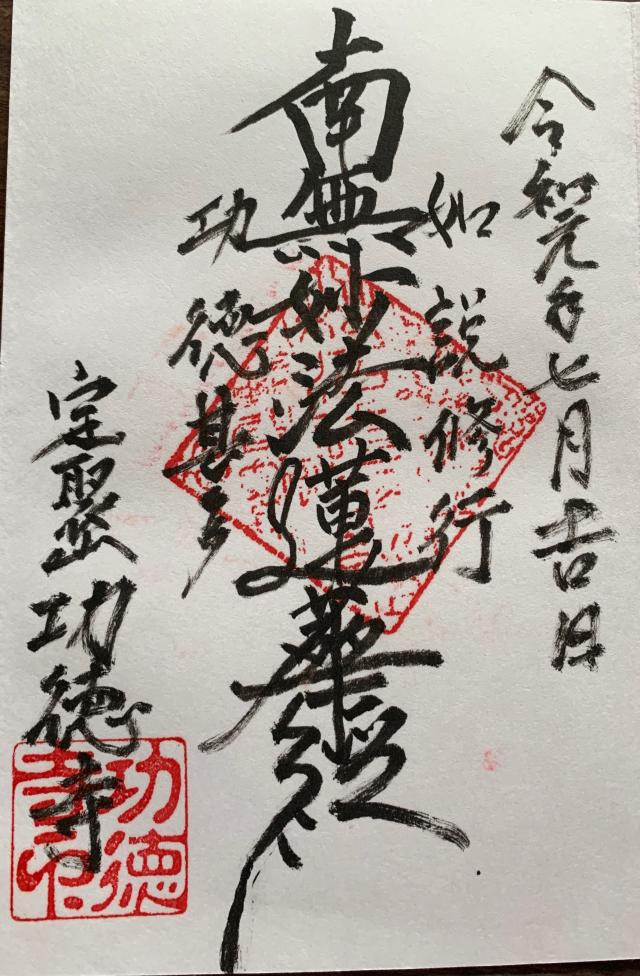 令和元年七月吉日
如説修行
南無妙法蓮華經
功徳甚多
宝聚山 功徳寺
功徳
寺印